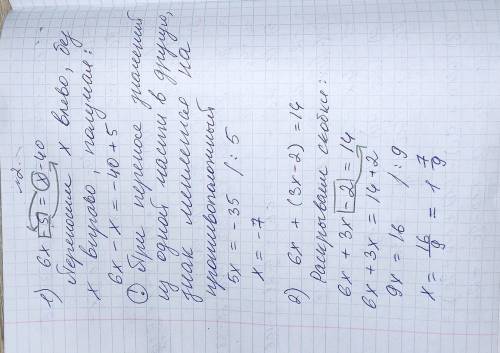 1) 6x -5 = x -40
Переносим x влево, без
x вправо, получая:
6x - x = -40 + 5
! При переносе значений
из одной части в другую,
знак меняется на
противоположный
5x = -35 / : 5
x = -7
2) 6x + (3x - 2) = 14
Раскрываем скобки:
6x + 3x -2 = 14
6x + 3x = 14 + 2
9x = 16 / : 9
x = 16/9 = 1 7/9